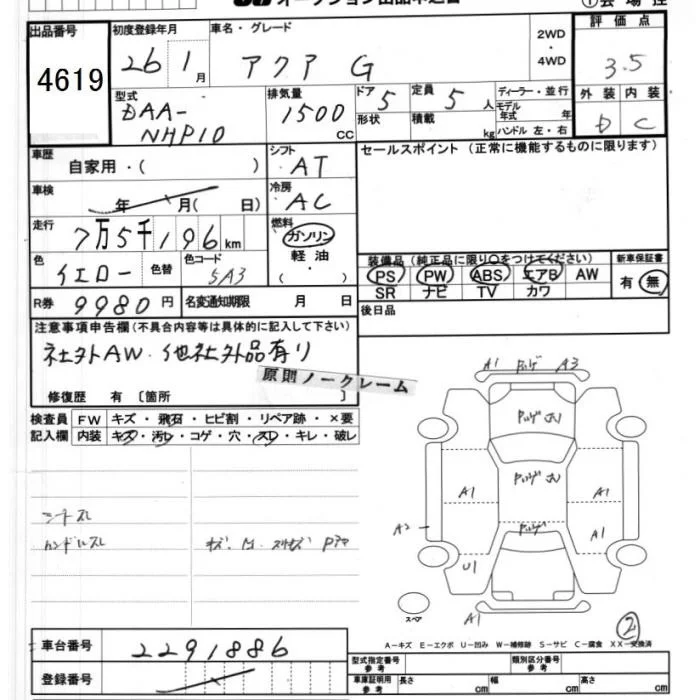 出品番号 初度登録年月 車名・グレード 2WD・4WD 評価点
4619 26 1月 アクア G 3.5
型式 排気量 ドア 定員 ディーラー・並行 外装 内装
DAA-NHP10 1500 CC 5 5人 モデル年式 年 D C
形状 積載 kg ハンドル 左・右
車歴 シフト セールスポイント (正常に機能するものに限ります)
自家用・( ) AT
車検 冷房
年 月( 日) AC
走行 燃料
7万5千196km ガソリン
軽油・( )
色 色替 色コード 装備品 (純正品に限り○をつけてください) 新車保証書
イエロー 5A3 PS PW ABS エアB AW 有 無
SR ナビ TV カワ
R券 9980円 名変通知期限 月 日 後日品
注意事項申告欄(不具合内容等は具体的に記入して下さい)
社外AW・他社外品有り
原則ノークレーム
修復歴 有 〔箇所 〕
検査員 FW キズ・飛石・ヒビ割・リペア跡・×要
記入欄 内装 キズ・汚レ・コゲ・穴・スレ・キレ・破レ
A1 A3
A1 A1
A2 A1
U1
シートスレ
ハンドルスレ
スペア A1 2
A-キズ E-エクボ U-凹み W-補修跡 S-サビ C-腐食 XX-交換済
車台番号 2291886
登録番号
型式指定番号 参考 類別区分番号 参考
車庫証明用 参考 長さ cm 幅 cm 高さ cm